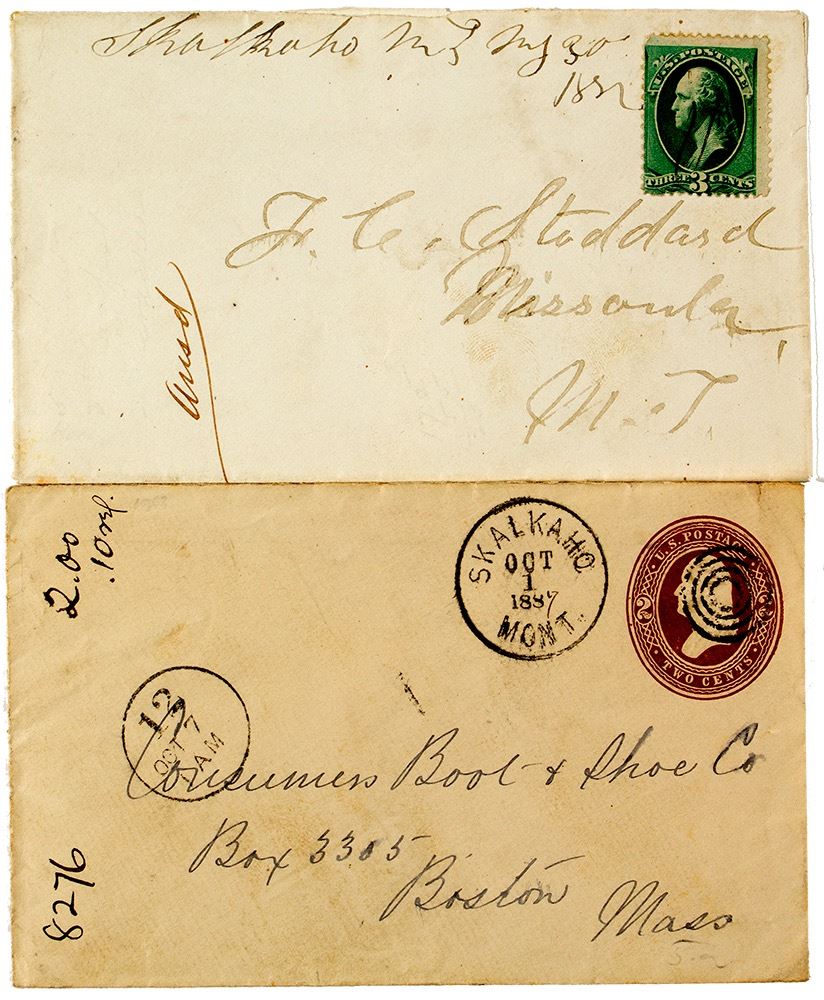 Skalkaho M.T. My 30
1882
U.S. POSTAGE
THREE 3 CENTS
F. C. Stoddard
Missoula,
M. T.
Ansd
2.00
.10
SKALKAHO
OCT
1
1887
MONT.
U.S. POSTAGE
2 2
TWO CENTS
12
OCT 7
AM
Consumers Boot & Shoe Co
Box 3305
Boston
Mass
8276